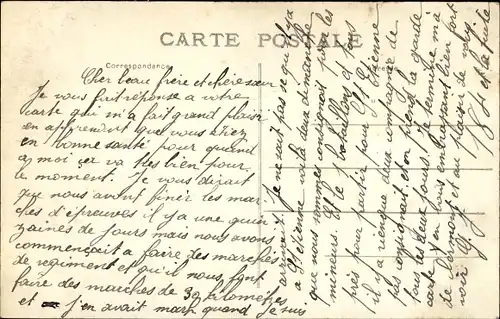 CARTE POSTALE
Correspondance
Cher beau frère et chère sœur
Je vous fait réponse a votre
carte qui m'a fait grand plaisir
en apprenant que vous étiez
en bonne santé pour quand
a moi ser va tres bien pour
le moment. Je vous dirait
que nous avont finir les mar
ches d'épreuves il y a une quin
zaines de jours mais nous avons
commençait a faire des marches
de regiment et qu'il nous font
faire des marches de 39 kilomètres
et j'en avait marre quand Je suis
arrivait Je ne sait pas se qu'il y a
a St Etienne voilà deux dimanche
que nous sommes consignait pour les
mineurs. Et le bataillons et pas
près pour partir pour St Etienne
il y a rienque deux compagnie de
pas consignait. et on prend la garde
tous les deux jours. Je termine ma
carte en vous embrassant bien fort
de Clermont et au plaisir de vous
voir
la suite